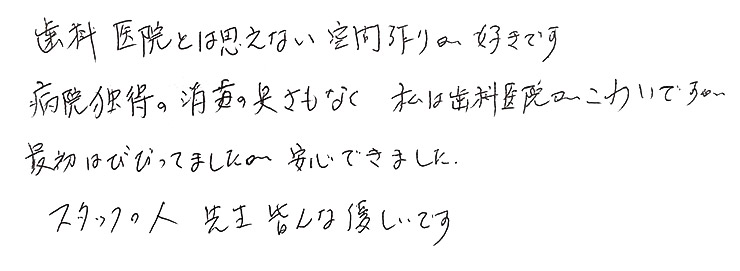 歯科医院とは思えない空間作りが好きです
病院独得の消毒の臭さもなく 私は歯科医院がこわいですが
最初はびびってましたが 安心できました.
スタッフの人 先生 皆んな優しいです